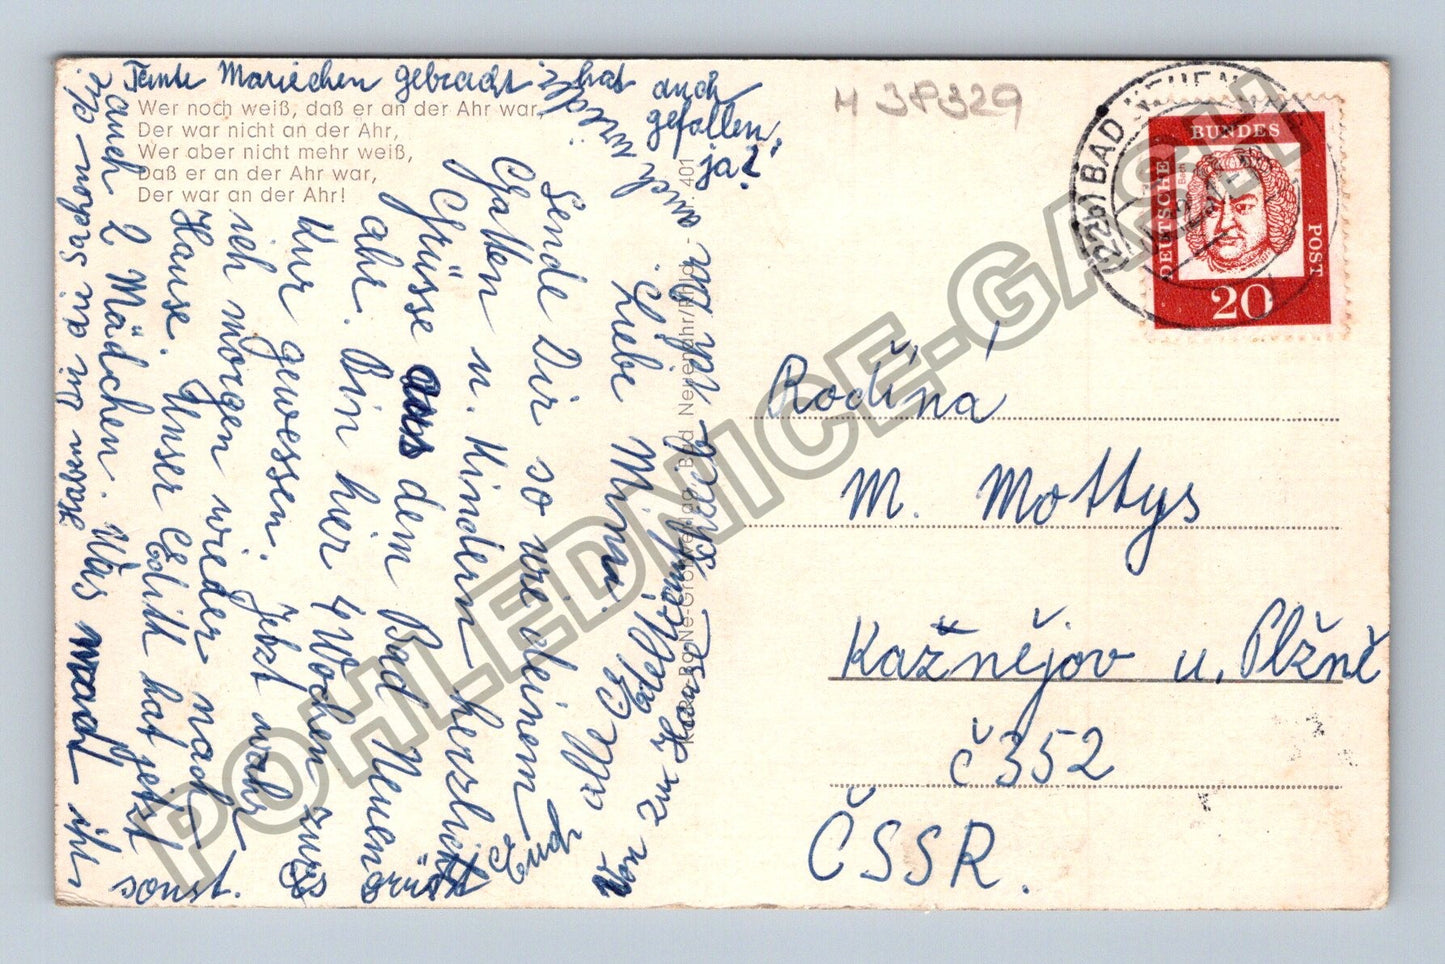 Tante Mariechen gebracht hat
auch
gefallen,
ja?
Wer noch weiß, daß er an der Ahr war,
Der war nicht an der Ahr,
Wer aber nicht mehr weiß,
Daß er an der Ahr war,
Der war an der Ahr!
Liebe Mimmi
Sende Dir so wie deinem
Gatten u. Kindern herzliche
Grüsse aus dem Bad Neuen
ahr. Bin hier 4 Wochen zurs
Kur gewessen. Jetzt wohl
ich morgen wieder nach
Hause. Unser Edith hat jetzt
auch 2 Mädchen. Was macht ihr
sonst.
Haben Dir die Sachen die
grüsst
Euch alle Edeltraut
Von zur Hause schreib Dir
401
M 38329
(22b) BAD NEUEN
DEUTSCHE
BUNDES
POST
20
Rodina
M. Mottys
Kažnějov u. Plžně
č 352
ČSSR.
POHLEDNICE-GASH